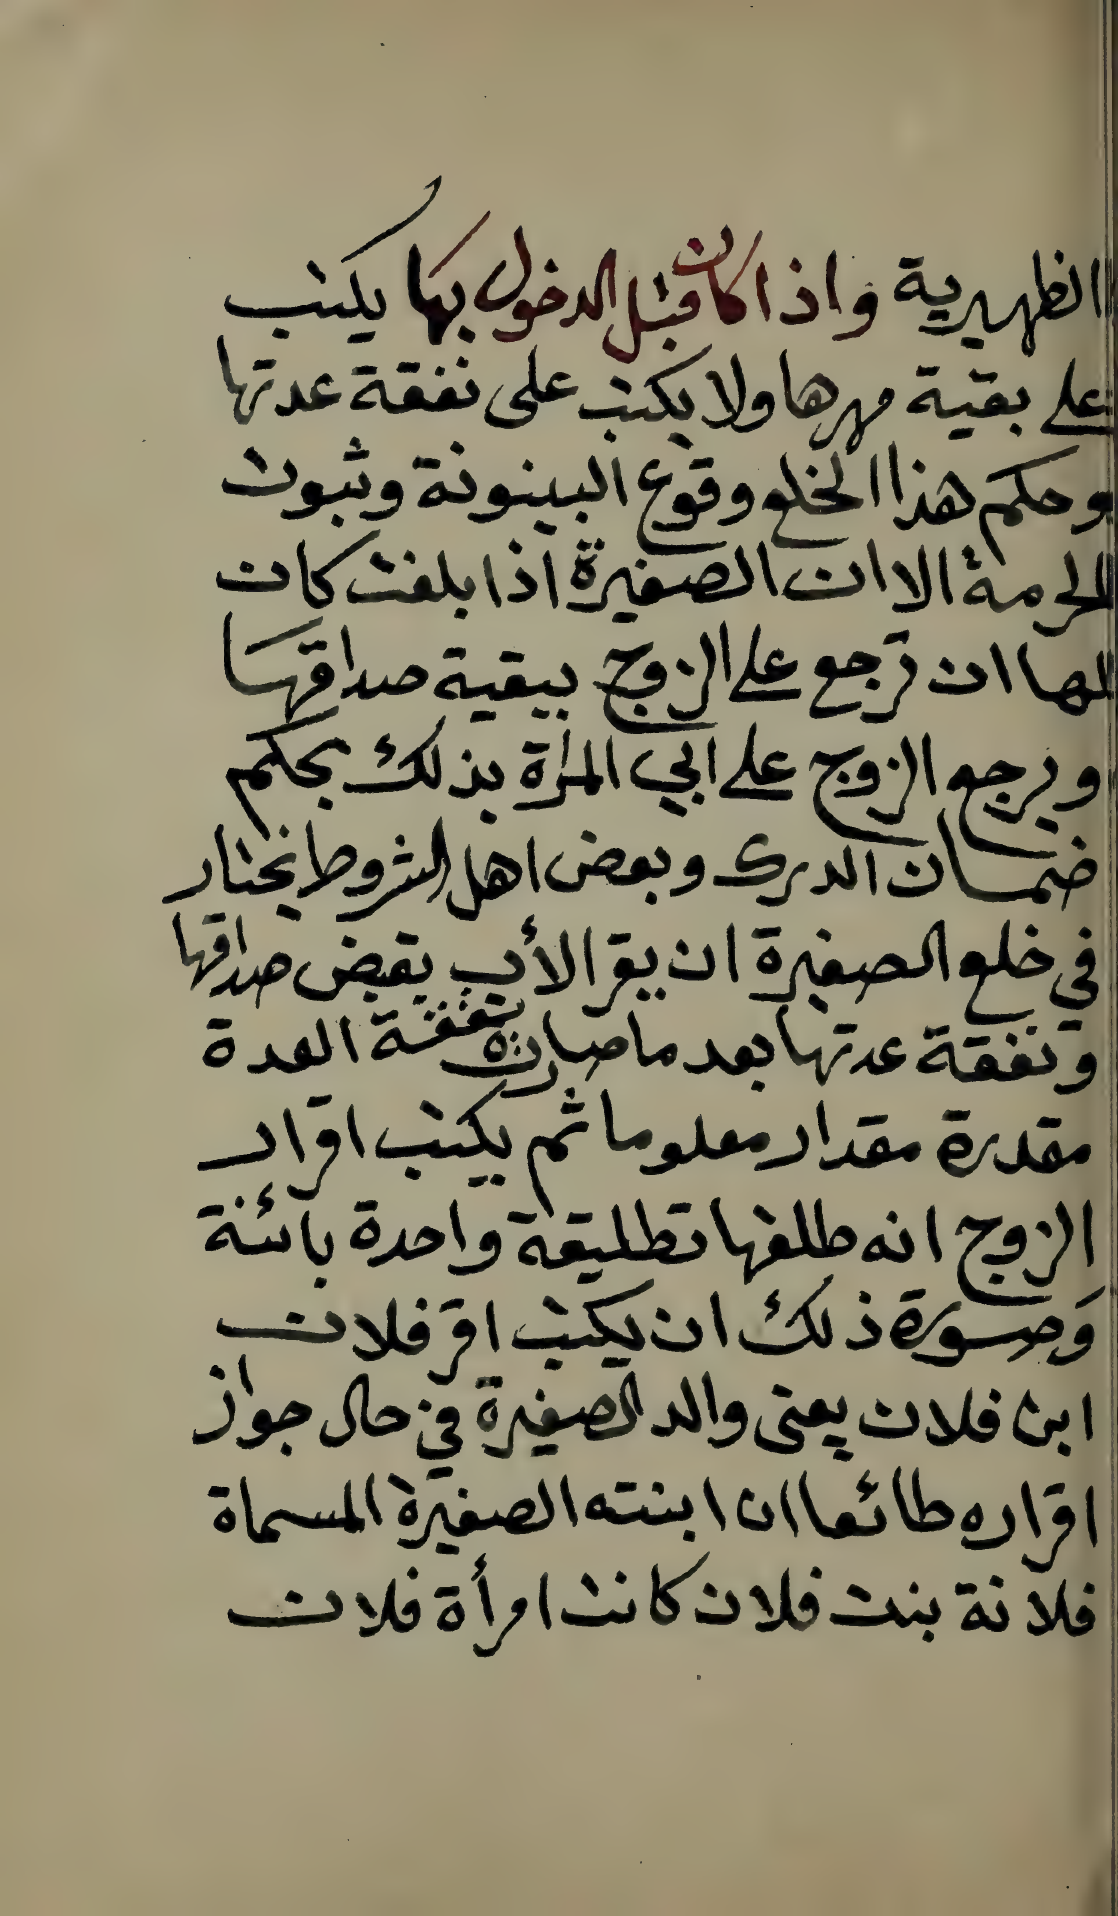 الظهيرية واذا كان قبل الدخول بها يكتب
على بقية مهرها ولا يكتب على نفقة عدتها
وحكم هذا الخلع وقوع البينونة وثبوت
الحرمة الا ان الصغيرة اذا بلغت كان
لها ان ترجع على الزوج ببقية صداقها
ويرجع الزوج على ابي المرأة بذلك بحكم
ضمان الدرك وبعض اهل الشروط يختار
في خلع الصغيرة ان يقر الأب بقبض صداقها
ونفقة عدتها بعد ما صارت نفقة العدة
مقدرة مقدار معلوما ثم يكتب اقرار
الزوج انه طلقها تطليقة واحدة بائنة
وصورة ذلك ان يكتب اقر فلان
ابن فلان يعني والد الصغيرة في حال جواز
اقراره طائعا ان ابنته الصغيرة المسماة
فلانة بنت فلان كانت امرأة فلان